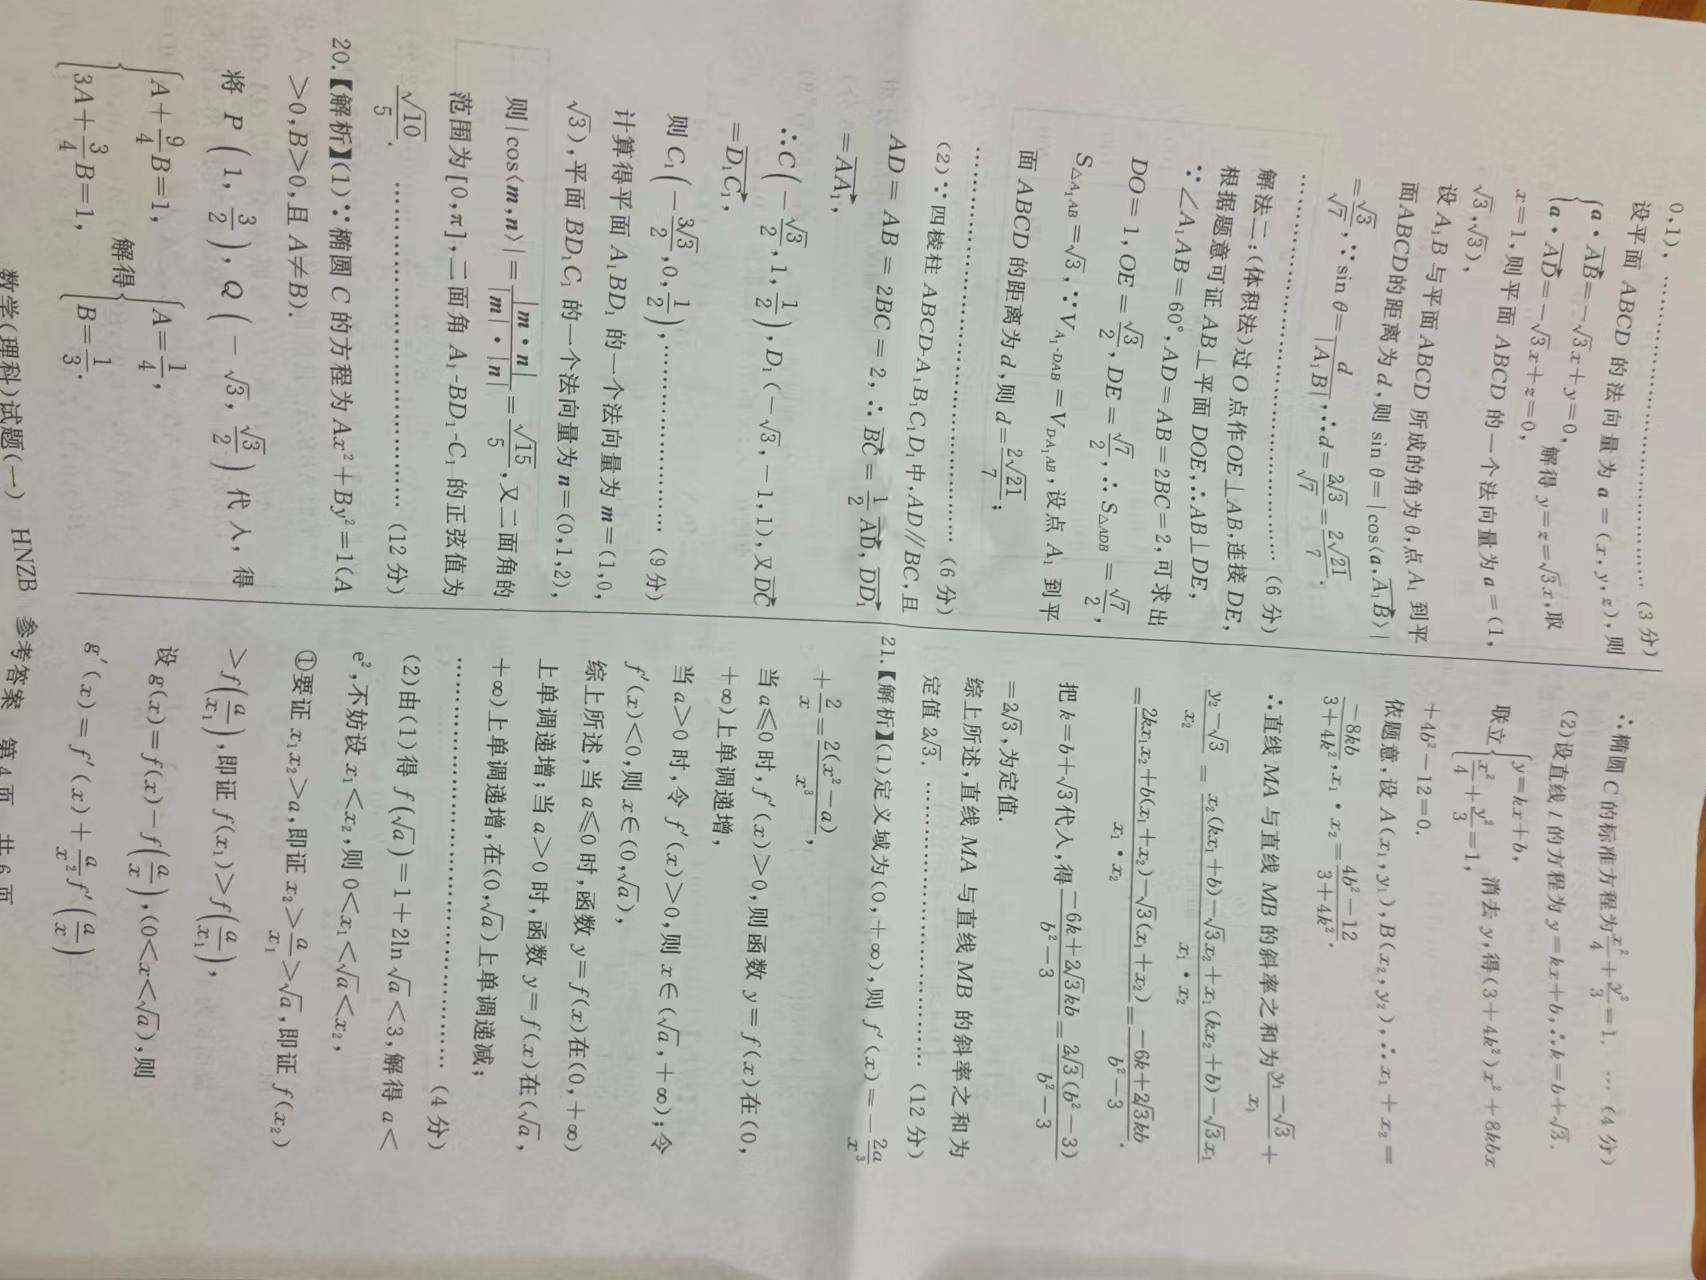 0,1), …………………………………… (3分)
设平面 ABCD 的法向量为 a=(x,y,z),则
{a·AB=-√3x+y=0,
{a·AD=-√3x+z=0, 解得 y=z=√3x,取
x=1,则平面 ABCD 的一个法向量为 a=(1,
√3,√3),
设 A₁B 与平面 ABCD 所成的角为 θ,点 A₁ 到平
面 ABCD的距离为 d,则 sin θ=|cos⟨a·A₁B⟩|
=√3/√7,∵sin θ=d/|A₁B|,∴d=2√3/√7=2√21/7.
…………………………………… (6分)
解法二:(体积法)过 O 点作OE⊥AB,连接 DE,
根据题意可证 AB⊥平面 DOE,∴AB⊥DE,
∵∠A₁AB=60°,AD=AB=2BC=2,可求出
DO=1,OE=√3/2,DE=√7/2,∴S△ADB=√7/2,
S△A₁AB=√3,∵V A₁-DAB=V DA₁AB,设点 A₁ 到平
面 ABCD 的距离为 d,则 d=2√21/7;
…………………………………… (6分)
(2)∵四棱柱 ABCD-A₁B₁C₁D₁中,AD//BC,且
AD=AB=2BC=2,∴BC=1/2AD,DD₁
=AA₁,
∴C(-√3/2,1,1/2),D₁(-√3,-1,1),又DC
=D₁C₁,
则 C₁(-3√3/2,0,1/2),…………………… (9分)
计算得平面 A₁BD₁ 的一个法向量为 m=(1,0,
√3),平面 BD₁C₁ 的一个法向量为 n=(0,1,2),
则|cos⟨m,n⟩|=|m·n|/|m|·|n|=√15/5,又二面角的
范围为[0,π],二面角 A₁-BD₁-C₁ 的正弦值为
√10/5. …………………………………… (12分)
20.【解析】(1)∵椭圆 C 的方程为 Ax²+By²=1(A
>0,B>0,且 A≠B).
将 P(1,3/2),Q(-√3,√3/2)代入,得
{A+9/4B=1,
{3A+3/4B=1, 解得{A=1/4,
{B=1/3.
∴椭圆 C 的标准方程为x²/4+y²/3=1. … (4分)
(2)设直线 l 的方程为 y=kx+b,∴k=b+√3.
联立{y=kx+b,
{x²/4+y²/3=1, 消去 y,得(3+4k²)x²+8kbx
+4b²-12=0.
依题意,设 A(x₁,y₁),B(x₂,y₂),∴x₁+x₂=
-8kb/3+4k²,x₁·x₂=4b²-12/3+4k².
∴直线 MA 与直线 MB 的斜率之和为y₁-√3/x₁+
y₂-√3/x₂=x₂(kx₁+b)-√3x₂+x₁(kx₂+b)-√3x₁/x₁·x₂
=2kx₁x₂+b(x₁+x₂)-√3(x₁+x₂)/x₁·x₂=-6k+2√3kb/b²-3.
把 k=b+√3代入,得-6k+2√3kb/b²-3=2√3(b²-3)/b²-3
=2√3,为定值.
综上所述,直线 MA 与直线 MB 的斜率之和为
定值 2√3. …………………………… (12分)
21.【解析】(1)定义域为(0,+∞),则 f′(x)=-2a/x³
+2/x=2(x²-a)/x³,
当 a≤0 时,f′(x)>0,则函数 y=f(x)在(0,
+∞)上单调递增,
当 a>0 时,令 f′(x)>0,则 x∈(√a,+∞);令
f′(x)<0,则 x∈(0,√a),
综上所述,当 a≤0 时,函数 y=f(x)在(0,+∞)
上单调递增;当 a>0 时,函数 y=f(x)在(√a,
+∞)上单调递增,在(0,√a)上单调递减;
…………………………………… (4分)
(2)由(1)得 f(√a)=1+2ln√a<3,解得 a<
e²,不妨设 x₁<x₂,则 0<x₁<√a<x₂,
①要证 x₁x₂>a,即证 x₂>a/x₁>√a,即证 f(x₂)
>f(a/x₁),即证 f(x₁)>f(a/x₁),
设 g(x)=f(x)-f(a/x),(0<x<√a),则
g′(x)=f′(x)+a/x²f′(a/x)
数学(理科)试题(一) HNZB 参考答案 第4页 共6页